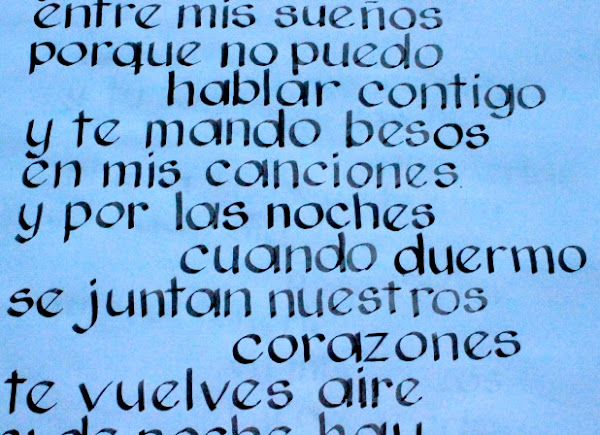 entre mis sueños
porque no puedo
hablar contigo
y te mando besos
en mis canciones
y por las noches
cuando duermo
se juntan nuestros
corazones
te vuelves aire
y de noche hay